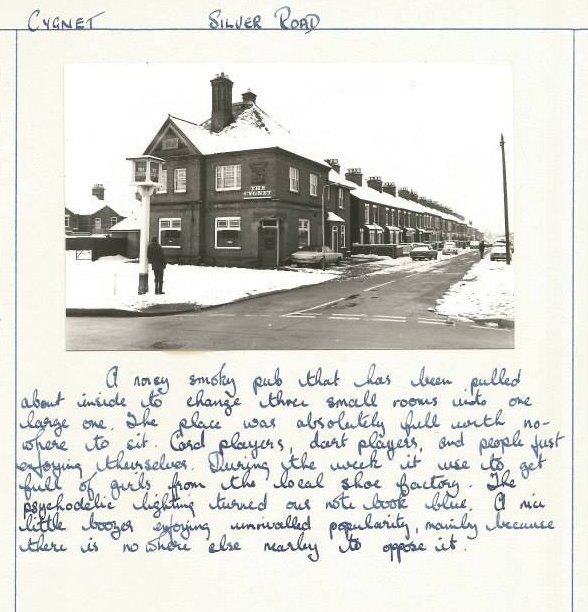 CYGNET SILVER ROAD
THE
CYGNET
A noisy smoky pub that has been pulled
about inside to change three small rooms into one
large one. The place was absolutely full with no-
where to sit. Card players, dart players, and people just
enjoying themselves. During the week it use to get
full of girls from the local shoe factory. The
psychodelic lighting turned our note book blue. A nice
little boozer enjoying unrivalled popularity, mainly because
there is no where else nearby to oppose it.